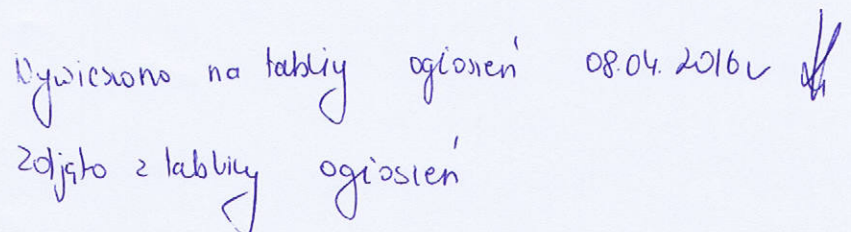 Wywieszono na tablicy ogłoszeń 08.04.2016r
Zdjęto z tablicy ogłoszeń